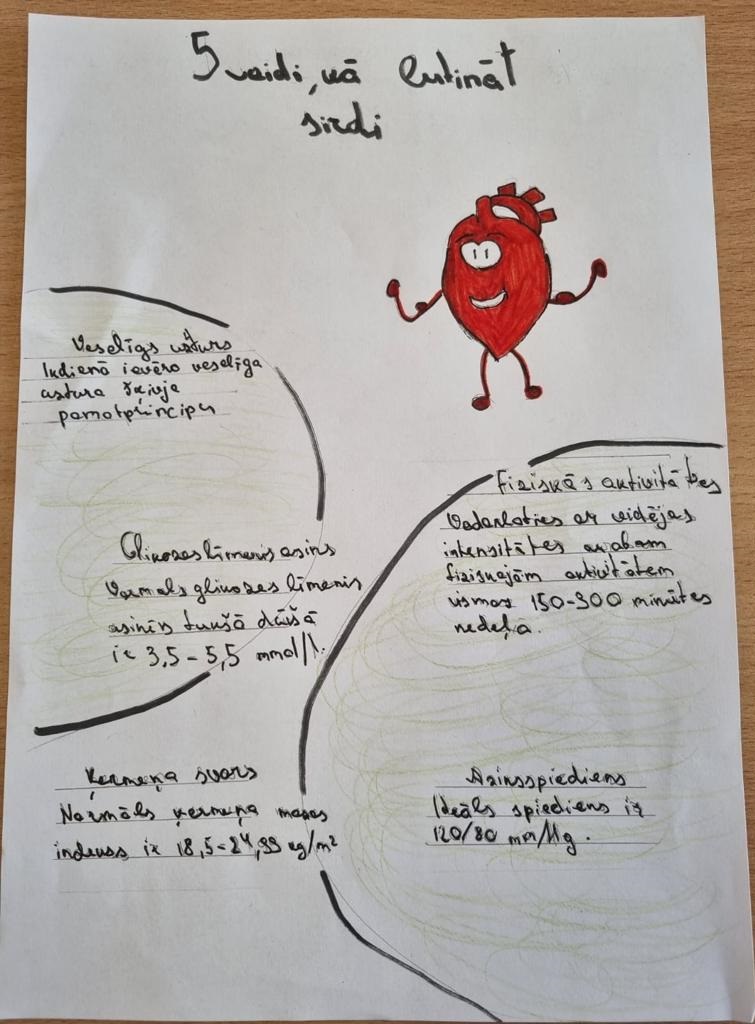 5 veidi, kā lutināt
sirdi
Veselīgs uzturs
Ikdienā ievēro veselīga
uztura šķīvja
pamatprincipu
Fiziskās aktivitātes
Nodarboties ar vidējas
intensitātes
fiziskajām aktivitātēm
vismaz 150-300 minūtes
nedeļā.
Glikozes līmenis asinīs
Normāls glikozes līmenis
asinīs tukšā dūšā
ir 3,5-5,5 mmol/l.
Ķermeņa svars
Normāls ķermeņa masas
indekss ir 18,5-24,99 kg/m²
Asinsspiediens
Ideāls spiediens ir
120/80 mm/Hg.